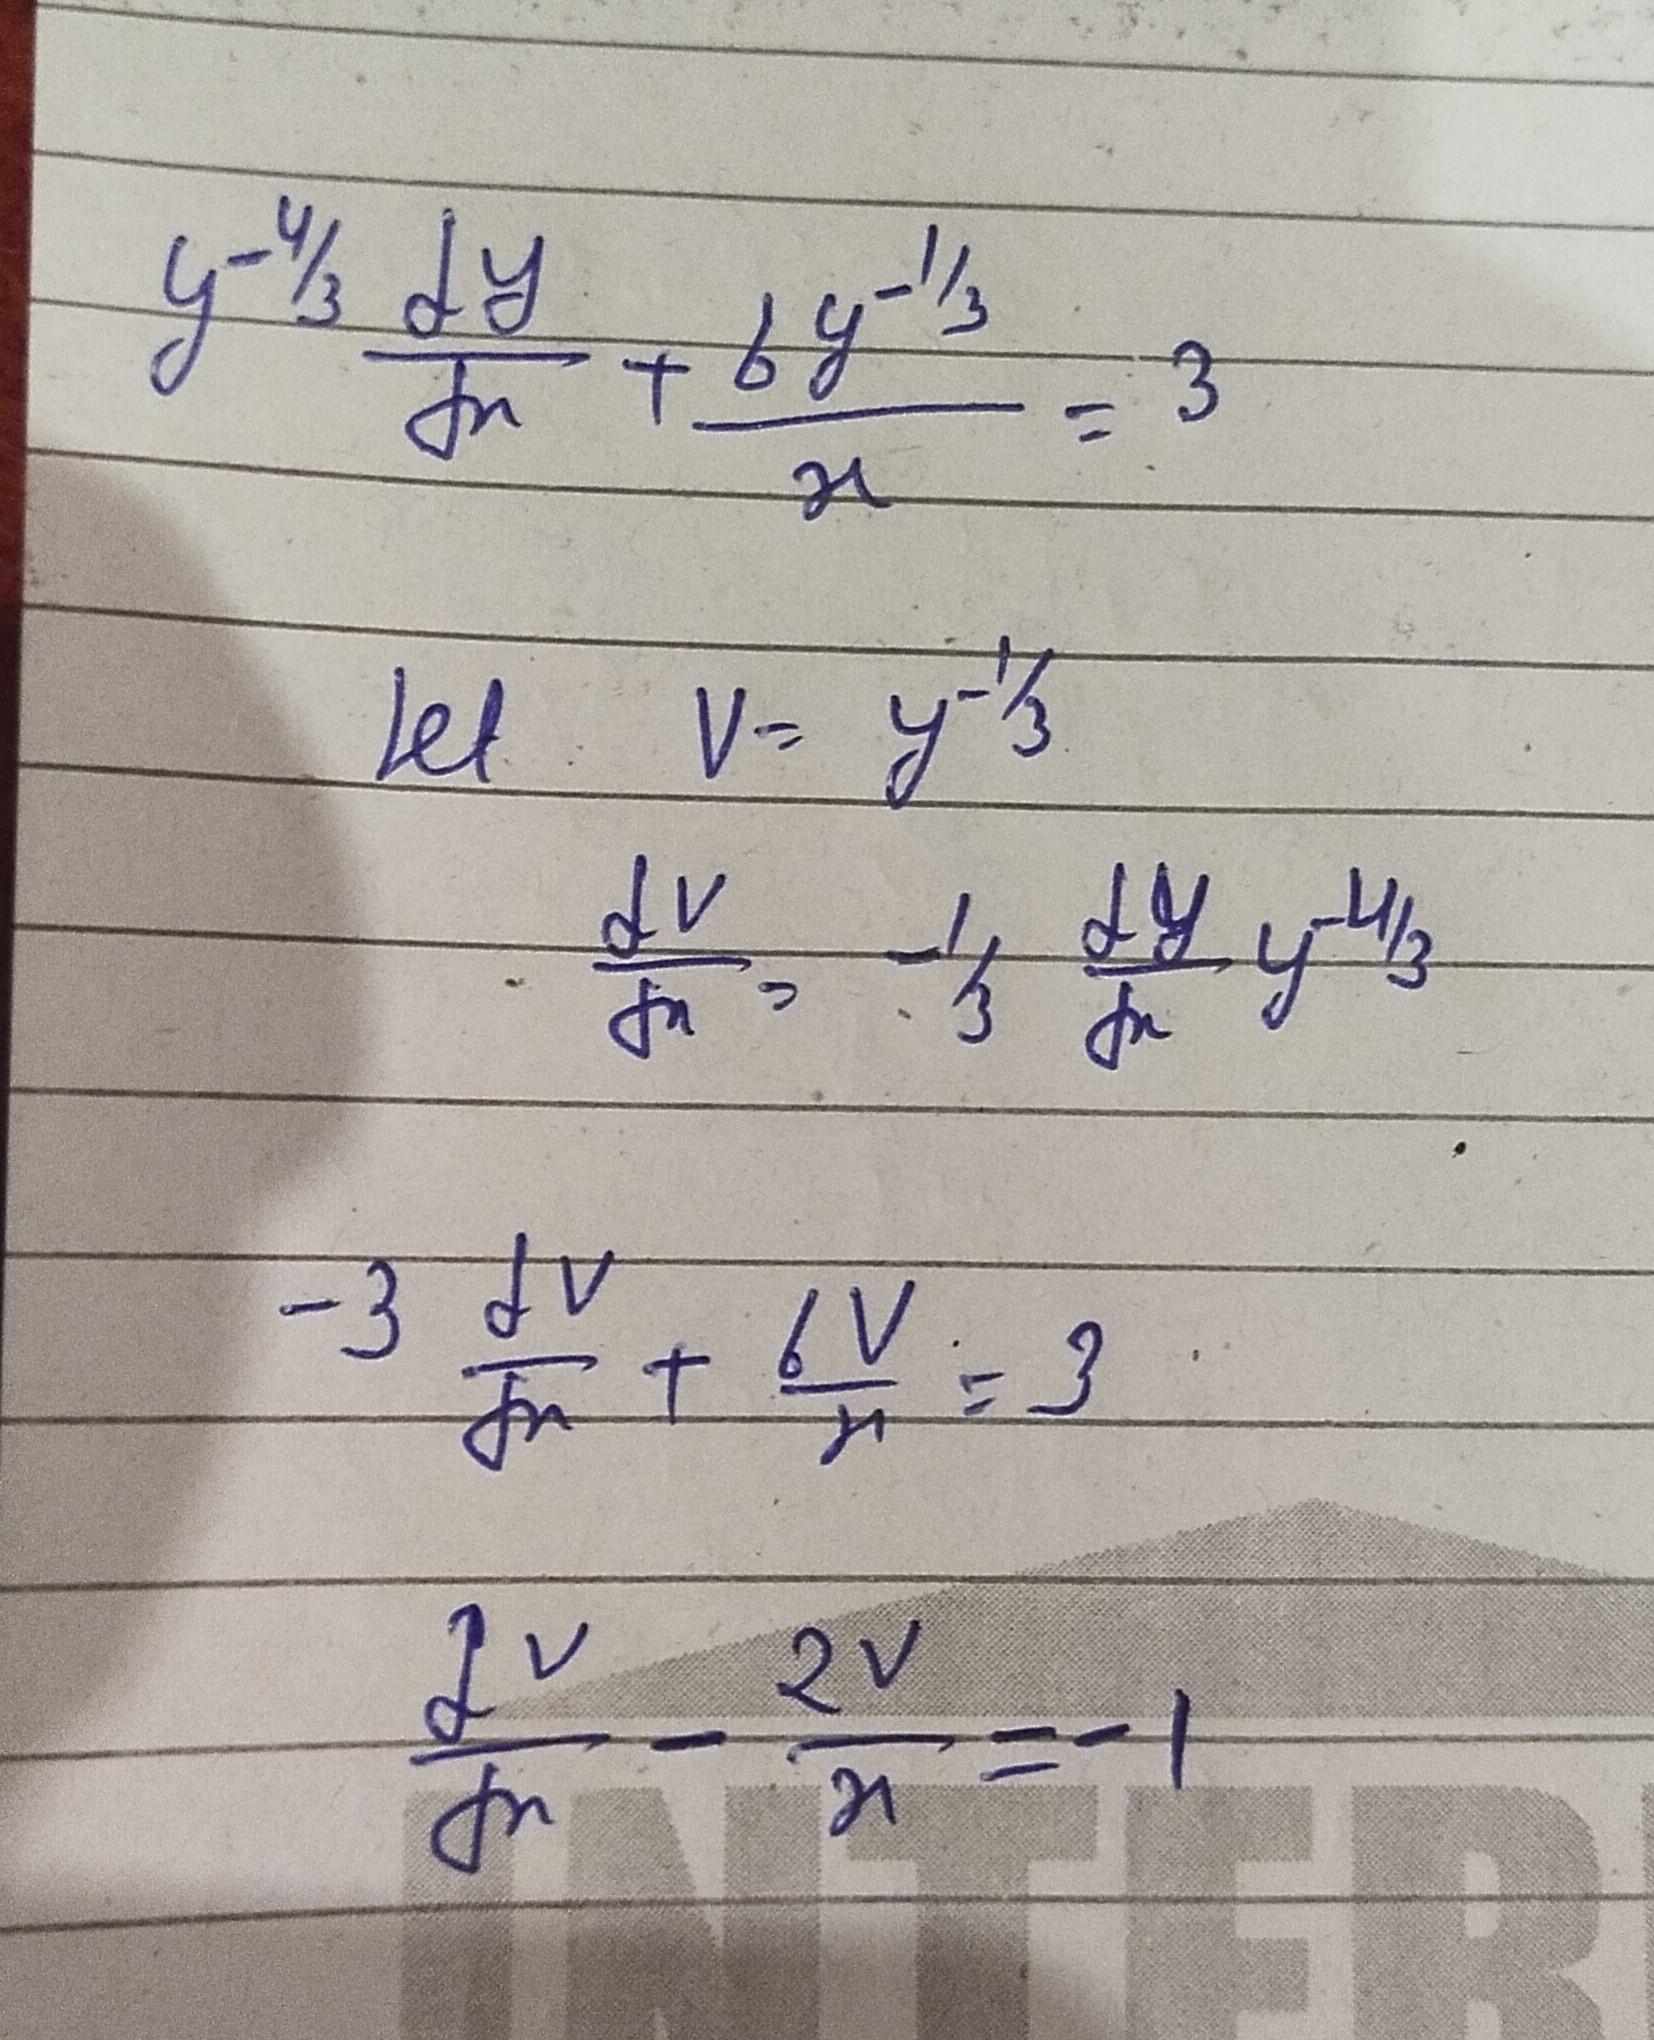 y^{-4/3} dy/dx + 6y^{-1/3}/x = 3
Let V = y^{-1/3}
dV/dx = -1/3 dy/dx y^{-4/3}
-3 dV/dx + 6V/x = 3
dV/dx - 2V/x = -1
INTER